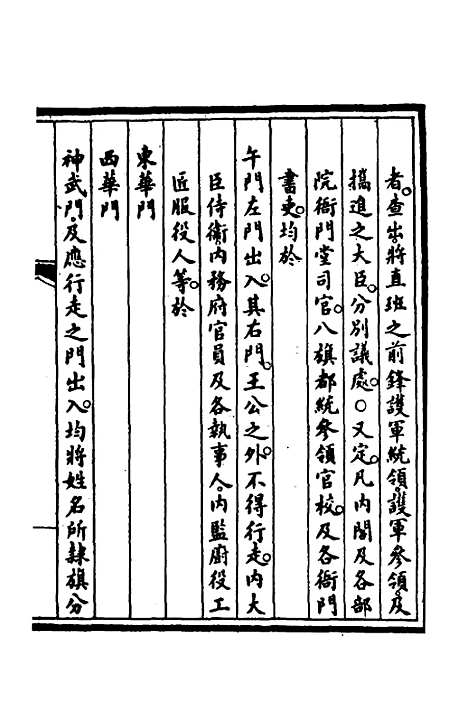 者。查出。將直班之前鋒護軍統領。護軍參領。及
攜進之大臣。分別議處。○又定。凡內閣及各部
院衙門堂司官。八旗都統參領官校。及各衙門
書吏。均於
午門左門出入。其右門。王公之外。不得行走。內大
臣侍衛內務府官員及各執事人。內監廚役工
匠服役人等。於
東華門
西華門
神武門。及應行走之門出入。均將姓名所隸旗分